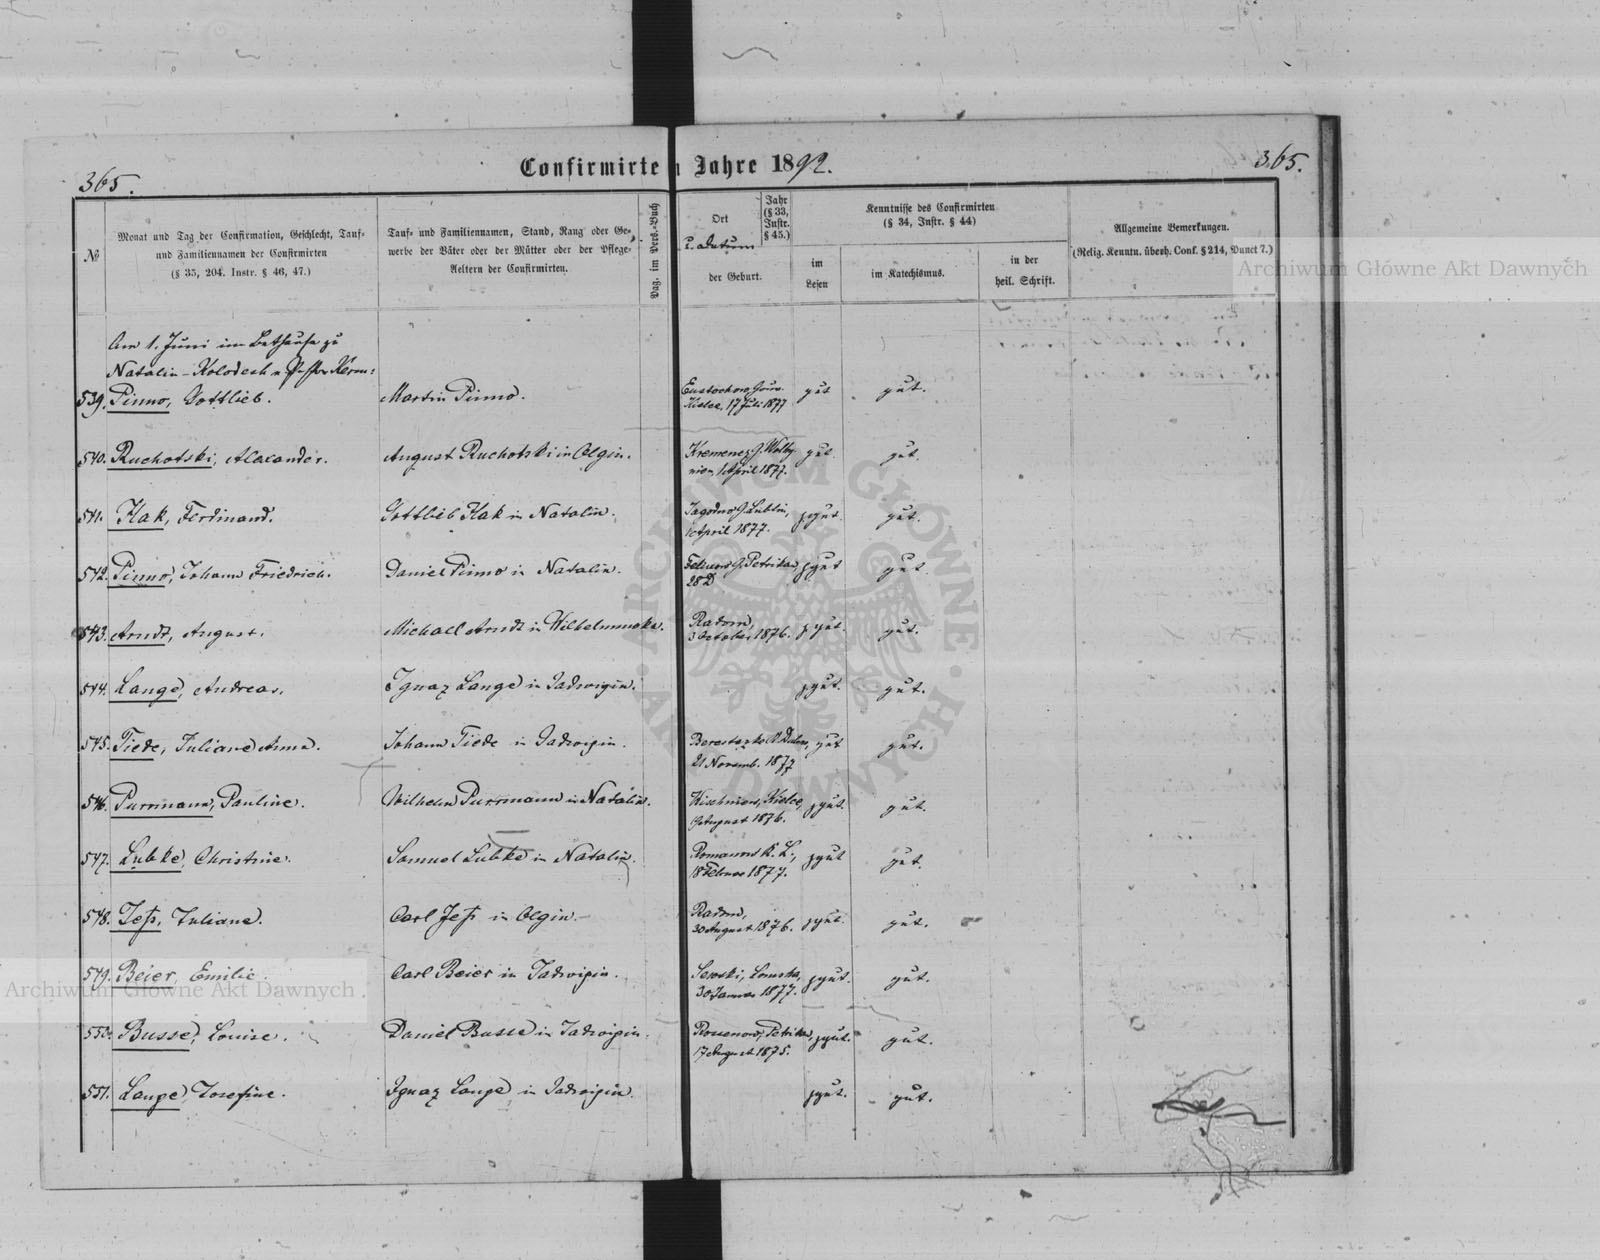 Confirmirte n Jahre 1892.
365.
365.
№
Monat und Tag der Confirmation, Geschlecht, Tauf=
und Familiennamen der Confirmirten
(§ 35, 204. Instr. § 46, 47.)
Tauf= und Familiennamen, Stand, Rang oder Ge=
werbe der Väter oder der Mütter oder der Pflege=
Aeltern der Confirmirten.
Pag. im Pers.=Buch
Ort
u. Datum
der Geburt.
Jahr
(§ 33,
Instr.
§ 45.)
Kenntnisse des Confirmirten
(§ 34, Instr. § 44)
im
Lesen
im Katechismus.
in der
heil. Schrift.
Allgemeine Bemerkungen.
(Relig. Kenntn. überh. Conf. § 214, Punct 7.)
Archiwum Główne Akt Dawnych
Am 1. Juni im Bethause zu
Natalin-Kolodesh
539. Pinno, Gottlieb. Martin Pinno. Kielce, 17 Juli 1877 gut gut.
540. Ruchotski, Alexander. August Ruchotski in Olgin. Kremenez, G. Wolhy
nien, 1 April 1877. gut gut.
541. Hak, Ferdinand. Gottlieb Hak in Natalin. Jagodno G. Lublin,
1 April 1877. zgut. gut.
542. Pinno, Johann Friedrich. Daniel Pinno in Natalin. G. Petrikau, zgut gut
28 D
543. Arndt, August. Michael Arndt in Radom,
3 October 1876. zgut. gut.
544. Lange, Andreas. Ignaz Lange in Jadwigin. zgut. gut.
545. Tiede, Juliane Anna. Johann Tiede in Jadwigin. gut gut.
21 Novemb. 1877
546. Purrmann, Pauline. Wilhelm Purrmann in Natalin. Kielce,
August 1876. zgut. gut.
547. Lubke, Christine. Samuel Lubke in Natalin. Romanow K. L.,
18 Februar 1877. zgut gut.
548. Jeß, Juliane. Carl Jeß in Olgin. Radom,
30 August 1876. zgut. gut.
549. Beier, Emilie. Carl Beier in Jadwigin. Lomsha,
30 Januar 1877. zgut gut.
550. Busse, Louise. Daniel Busse in Jadwigin. Petrikau,
17 August 1875. zgut. gut.
551. Lange, Josefine. Ignaz Lange in Jadwigin. zgut. gut.
Archiwum Główne Akt Dawnych
ARCHIWUM GŁÓWNE AKT DAWNYCH